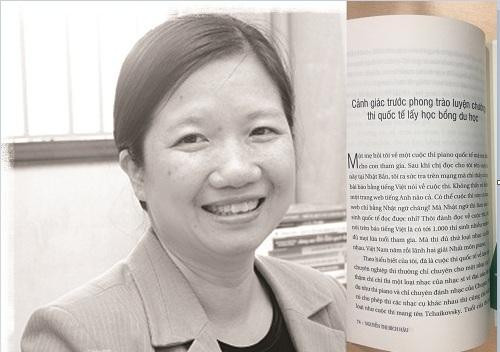 Cảnh giác trước phong trào luyện chương
thi quốc tế lấy học bổng du học
Một mẹ hỏi tôi về một cuộc thi piano quốc tế
cho con tham gia. Sau khi chị đọc cho tôi
này tại Nhật Bản, tôi ra sức tra trên mạng mà chỉ thấy
bài báo bằng tiếng Việt nói về cuộc thi. Không thấy
một trang web tiếng Anh nào cả. Có thể cuộc thi
web chỉ bằng Nhật ngữ chăng? Mà Nhật ngữ thì làm sao
sinh quốc tế đọc được nhỉ? Thời đánh đọc về cuộc
nói trên báo tiếng Việt là có tới 1.000 thí sinh
đủ mọi lứa tuổi tham gia. Mà thi đủ thứ loại nhạc
nhau. Việt Nam năm rồi lãnh hai giải Nhất môn piano.
Theo hiểu biết của tôi, đã là cuộc thi quốc tế
chuyên nghiệp thì thường chỉ chuyên cho một
thậm chí chỉ thi một loại nhạc của nhạc sĩ vĩ đại
dụ như thi piano và chỉ chuyên đánh nhạc của Chopin
có cho phép thi các nhạc cụ khác nhau thì cũng
loại như cuộc thi mang tên Tchaikovsky. Tuổi của
76 - NGUYỄN THỊ BÍCH HẬU